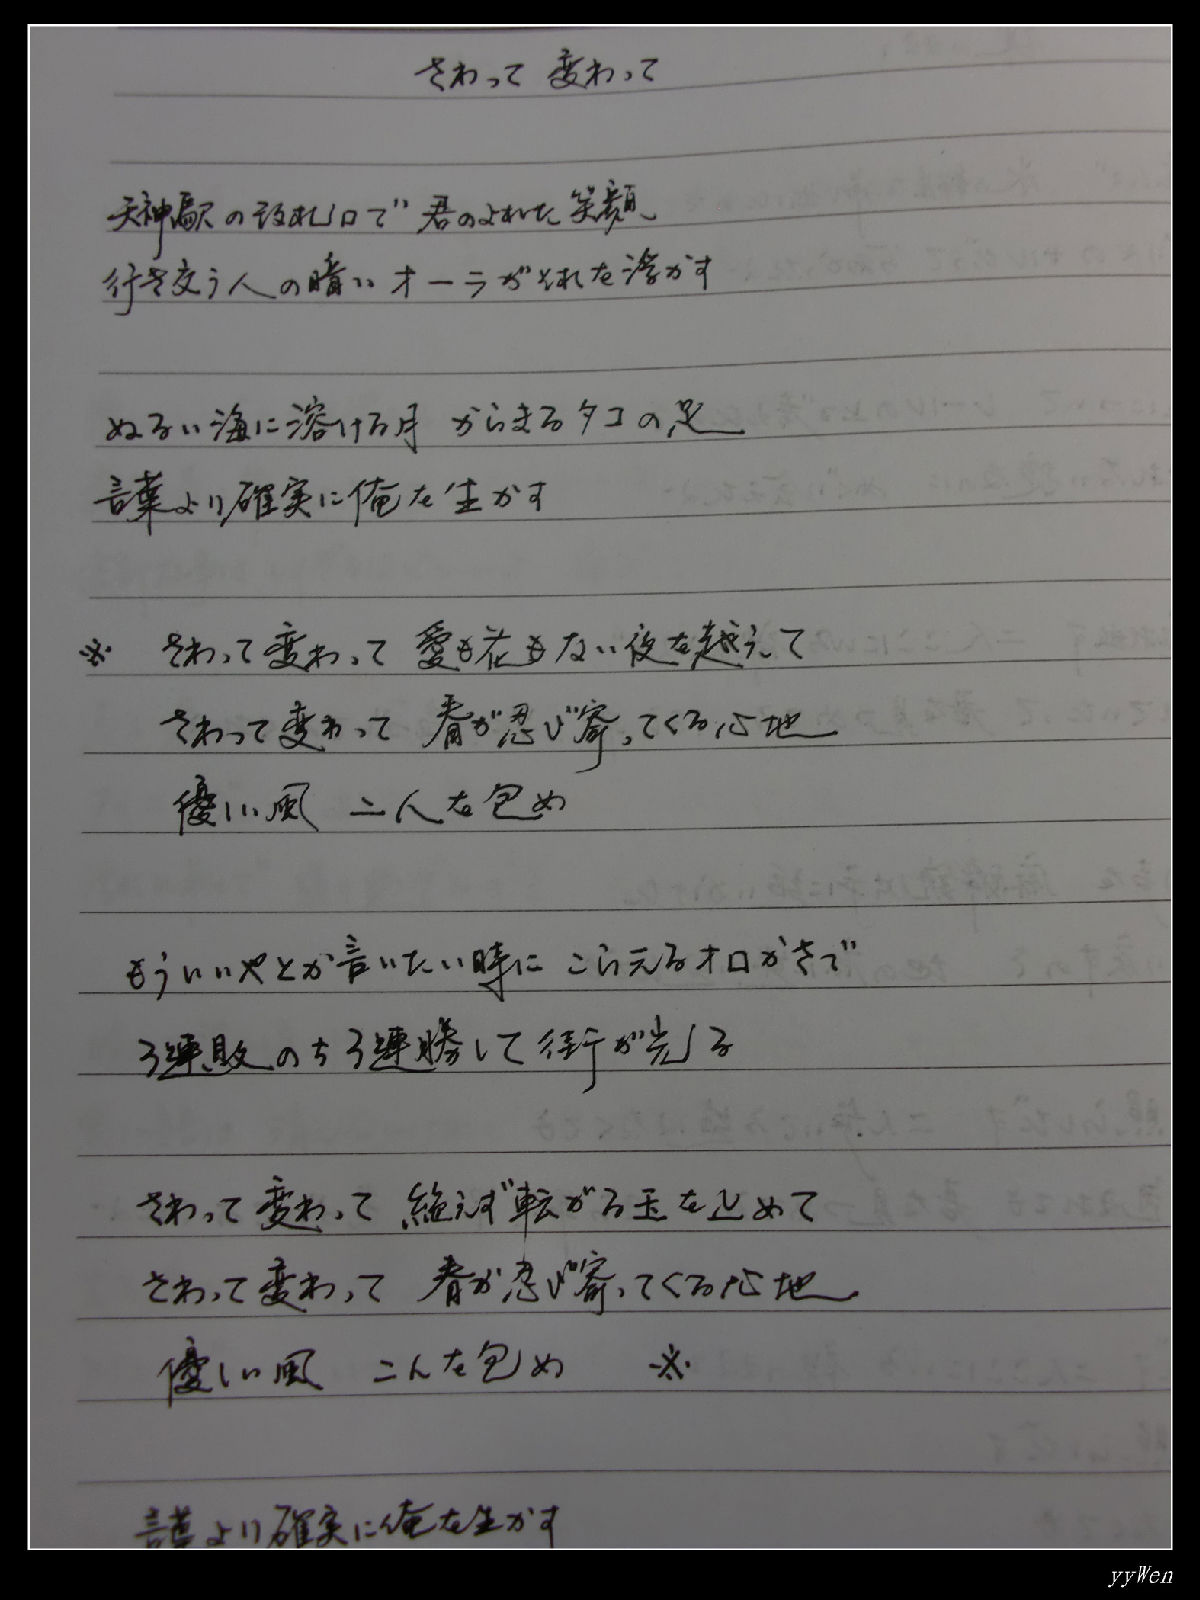 さわって 変わって
天神駅の改札口で 君のよれた笑顔
行き交う人の暗いオーラがそれを浮かす
ぬるい海に溶ける月 からまるタコの足
言葉より確実に俺を生かす
※ さわって変わって 愛も花もない夜を越えて
さわって変わって 春が忍び寄ってくる心地
優しい風 二人を包め
もういいやとか言いたい時に こらえるオロかさで
3連敗のち3連勝して街が光る
さわって変わって 絶えず転がる玉を止めて
さわって変わって 春が忍び寄ってくる心地
優しい風 こんを包め ※
言葉より確実に俺を生かす
yyWen